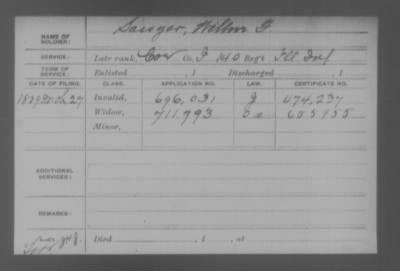 NAME OF SOLDIER: Sawyer, Wilbur F.
SERVICE: Late rank, Cor Co. I 140 Regt Ill Inf
TERM OF SERVICE: Enlisted , 1 Discharged , 1
DATE OF FILING. CLASS. APPLICATION NO. LAW. CERTIFICATE NO.
27 Invalid, 696,031 474,237
Widow, 711,793 655155
Minor,
ADDITIONAL SERVICES:
REMARKS:
Died , 1 , at